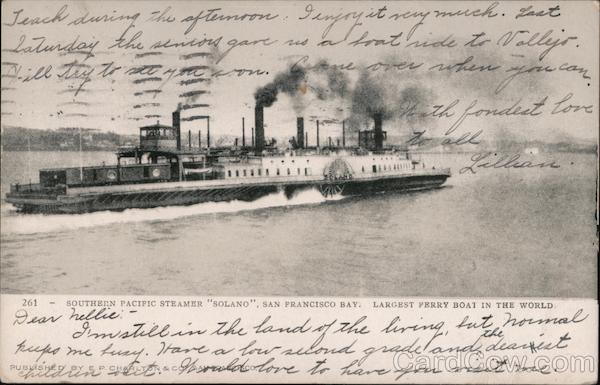 Teach during the afternoon. I enjoy it very much. Last
Saturday the seniors gave us a boat ride to Vallejo.
I'll try to see you soon. Come over when you can.
With fondest love
to all
Lillian.
261 - SOUTHERN PACIFIC STEAMER "SOLANO", SAN FRANCISCO BAY. LARGEST FERRY BOAT IN THE WORLD.
Dear Nellie:-
I'm still in the land of the living, but Normal
keeps me busy. Have a low second grade and the dearest
children ever. Would love to have you visit me.
PUBLISHED BY E. P. CHARLTON & CO. SAN FRANCISCO
CardCow.com